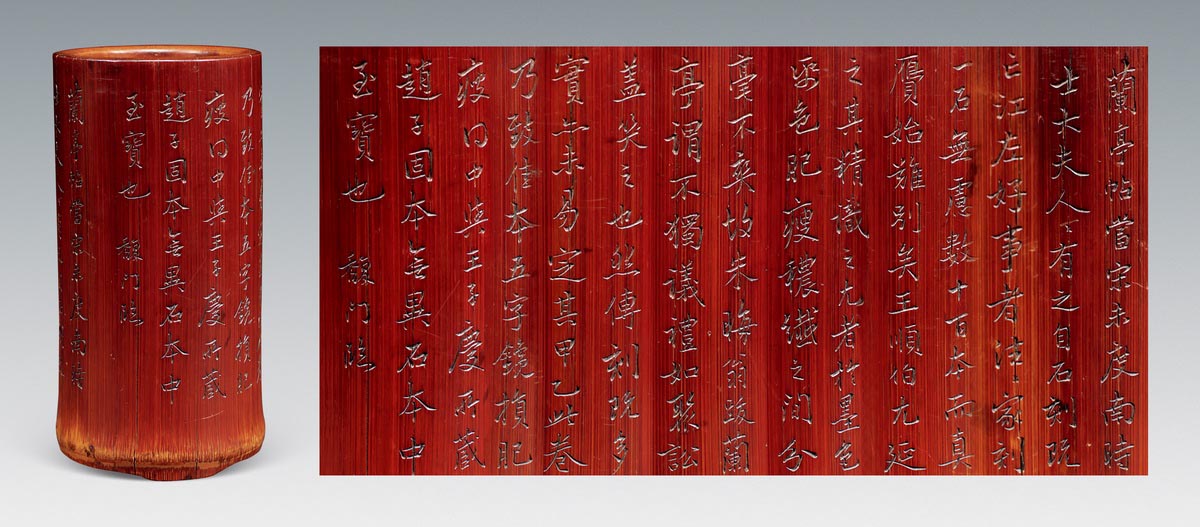 蘭亭帖當宋未度南時
士大夫人〻有之自石刻既
亡江左好事者往〻家刻
一石無慮數十百本而真
贋始難別矣王順伯尤延
之其精識之尤者於墨色
紙色肥瘦穠纖之間分
毫不爽故朱晦翁跋蘭
亭謂不獨議禮如聚訟
盖笑之也然傳刻既多
實亦未易定其甲乙此卷
乃致佳本五字鑱損肥
瘦得中與王子慶所藏
趙子固本無異石本中
至寶也
乃致佳本五字鑱損肥
瘦得中與王子慶所藏
趙子固本無異石本中
至寶也
蘭亭帖當宋未度南時